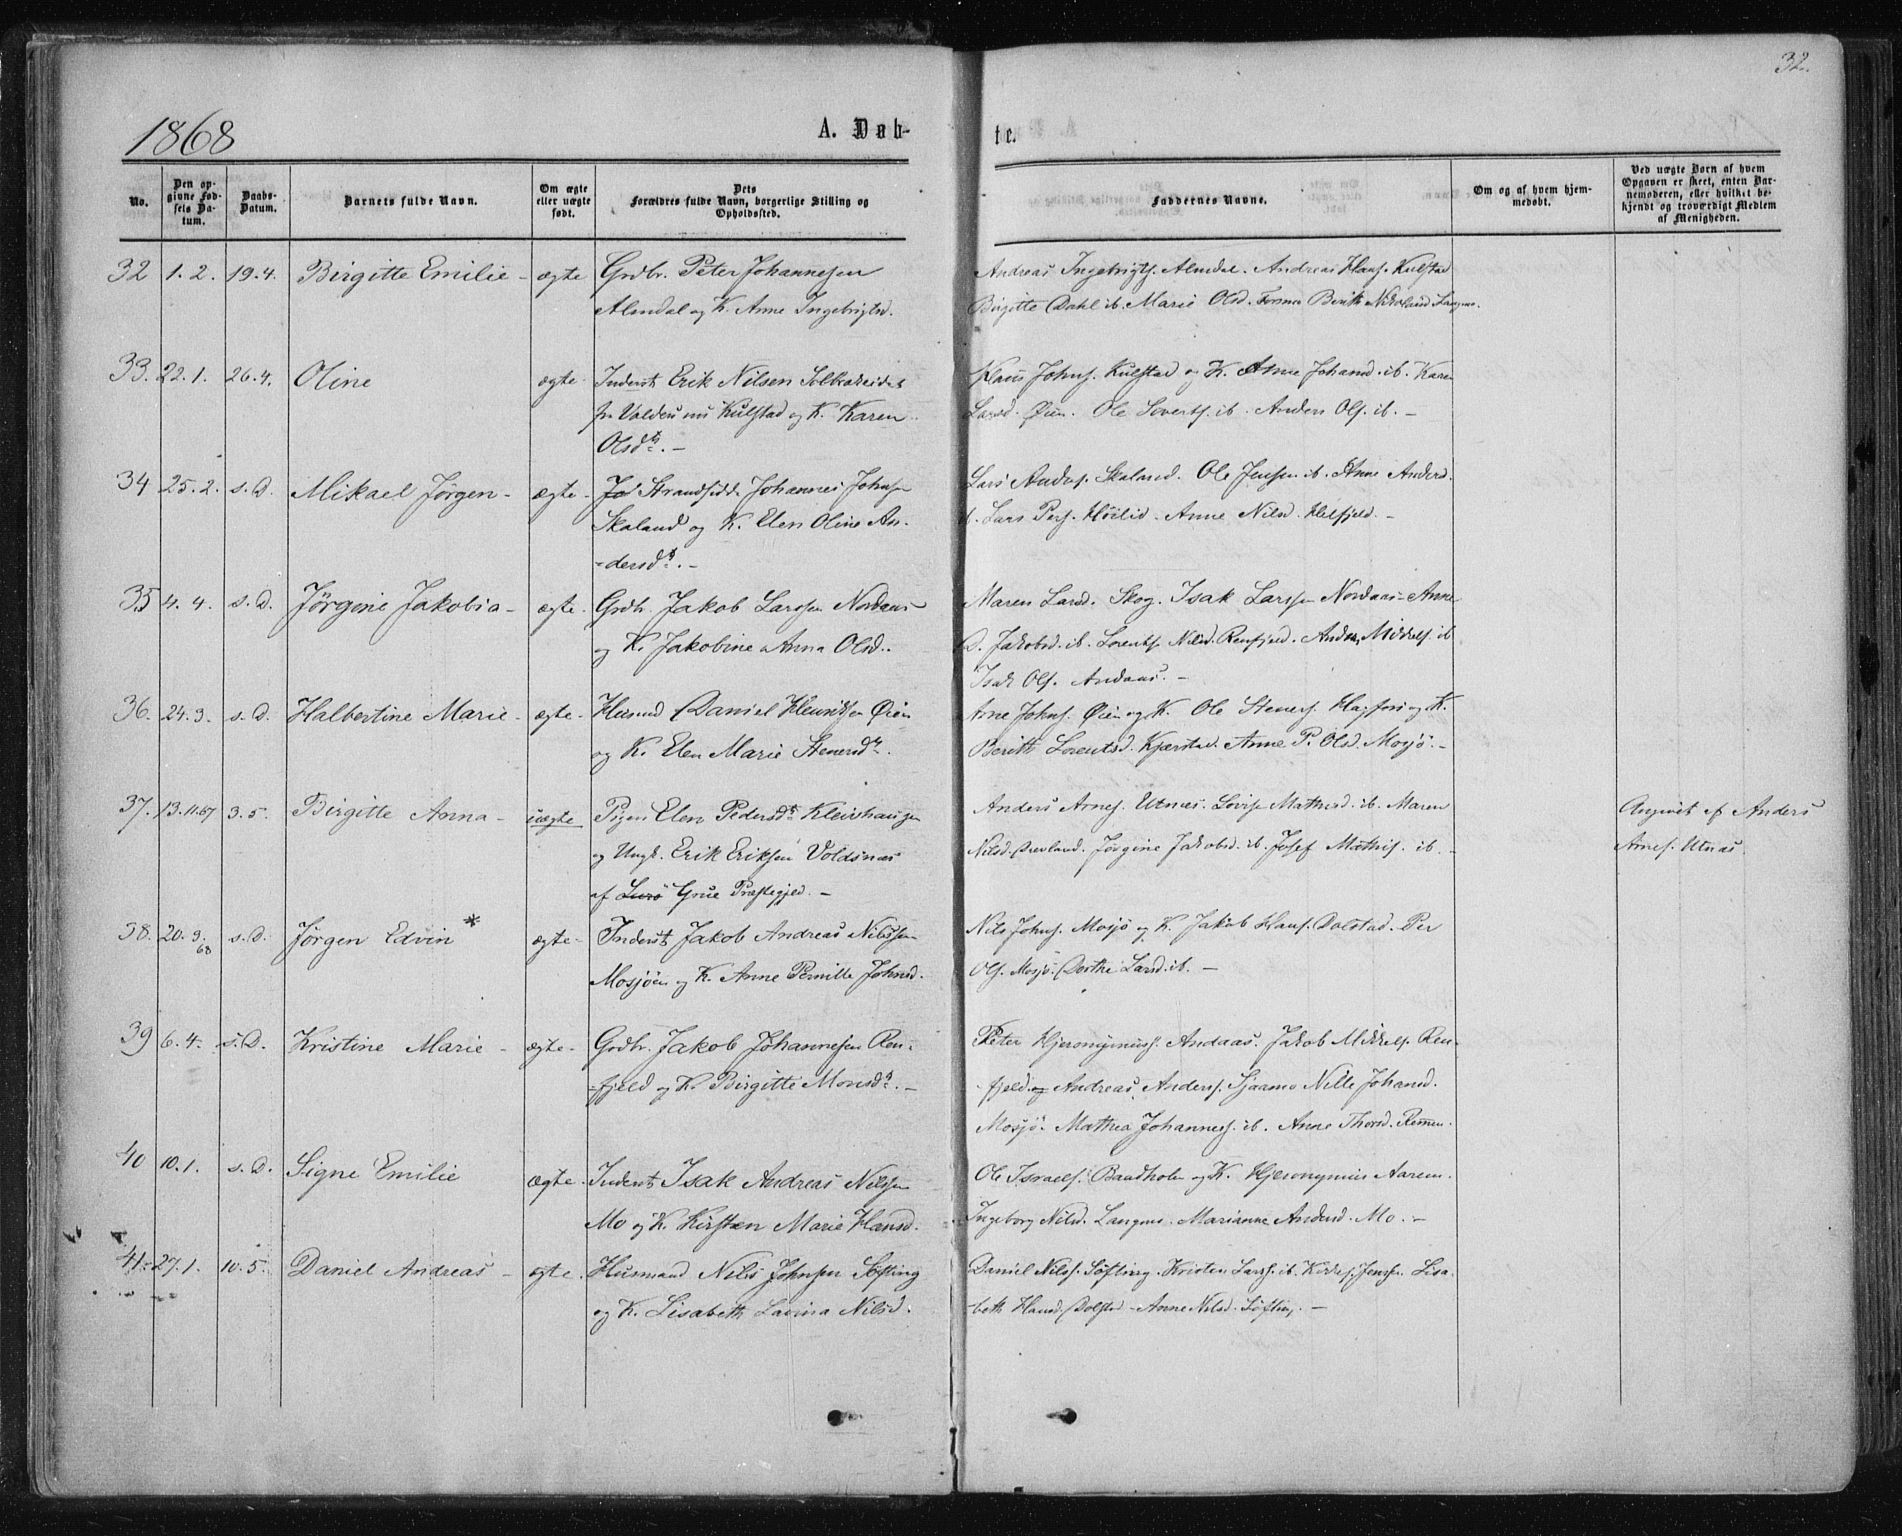 32.
1868
A. Døb-
te.
No.
Den op-
givne Fød-
sels Da-
tum.
Daabs-
Datum.
Barnets fulde Navn.
Om ægte
eller uægte
født.
Dets
Forældres fulde Navn, borgerlige Stilling og
Opholdssted.
Faddernes Navne.
Om og af hvem hjem-
medøbt.
Ved uægte Børn af hvem
Opgaven er skeet, enten Bar-
nemoderen, eller hvilket be-
kjendt og troværdigt Medlem
af Menigheden.
32 1. 2. 19. 4. Birgitte Emilie - ægte Grdbr. Peter Johannesen
Almdal og K. Anne Ingebrigtsd.
Andreas Ingebrigts. Almdal. Andreas Hans. Kulstad
Birgitte Dahl ib. Marie Olsd. Forsmo Berith Nikolaisd. Langnes.
33. 22. 1. 26. 4. Oline ægte. Inderst Erik Nilsen
fra Valders nu Kulstad og K. Karen
Olsdtr. -
Klaus Johns. Kulstad og K. Anne Johansd. ib. Karen
Larsd. Øien. Ole Sverts. ib. Anders Ols. ib. -
34 25. 2. s. D. Mikael Jørgen - ægte Strandsidd. Johannes Johnsen
Skaland og K. Elen Oline An-
-dersdtr. -
Lars Anders. Skaland. Ole Jensen ib. Anne Andersd.
ib. Lars Pers. Høilid. Anne Nilsd. Helfjeld. -
35 4. 4. s. D. Jørgine Jakobia - ægte Grdbr. Jakob Larssen Nordaas
og K. Jakobine Anna Olsd.
Maren Larsd. Skog. Isak Larssen Nordaas - Anne
D. Jakobsd. ib. Lorents. Nilsd. Renfjeld. Anders Mikkels. ib
Isak Ols. Andaas. -
36. 24. 3. s. D. Halbertine Marie - ægte - Husmd Daniel Henriksen Øien
og K. Elen Marie Stenersdtr.
Arne Johns. Øien og K. Ole Steners. Hagfors og K.
Berith Lorentsd. Kjærstad. Anne P. Olsd. Mosjø. -
37. 13. 11. 67 3. 5. Birgitte Anna - uægte Pigen Elen Pedersdtr Kleivhaugen
og Ungk. Erik Eriksen Voldsnæs
af Lurø Grue Præstegjeld. -
Anders Arnes. Utnæs. Lovise Mathisd. ib. Maren
Nilsd. Drevland. Jørgine Jakobsd. ib. Josef Mathis. ib. -
Angivet af Anders
Arnes. Utnæs.
38. 20. 3. 68 s. D. Jørgen Edvin * ægte - Inderst Jakob Andreas Nilssen
Mosjøen og K. Anne Pernille Johnsd.
Nils Johns. Mosjø og K. Jakob Hans. Dolstad. Per
Ols. Mosjø. Dorthe Larsd. ib. -
39 6. 4. s. D. Kristine Marie - ægte - Grdbr. Jakob Johannesen Ren-
-fjeld og K. Birgitte Monsdtr. -
Peter Hjeronymuss. Andaas. Jakob Mikkels. Ren-
-fjeld og Andreas Anders. Sjaamo Nille Johansd.
Mosjø. Mathea Johanness. ib. Anne Thorsd. Remmen.
40 10. 1. s. D. Signe Emilie ægte. Inderst Isak Andreas Nilssen
Mo og K. Kirsten Marie Hansd.
Ole Israels. Baadholm og K. Hjeronymus Aarem.
Ingeborg Nilsd. Langnes. Marianne Andersd. Mo. -
41. 27. 1. 10. 5. Daniel Andreas - ægte. Husmand Nils Johnsen Søfting
og K. Lisabeth Lavina Nilsd.
Daniel Nils. Søfting. Kristen Larss. ib. Jenss. Lisa-
beth Hansd. Dolstad - Anne Nilsd. Søfting. -